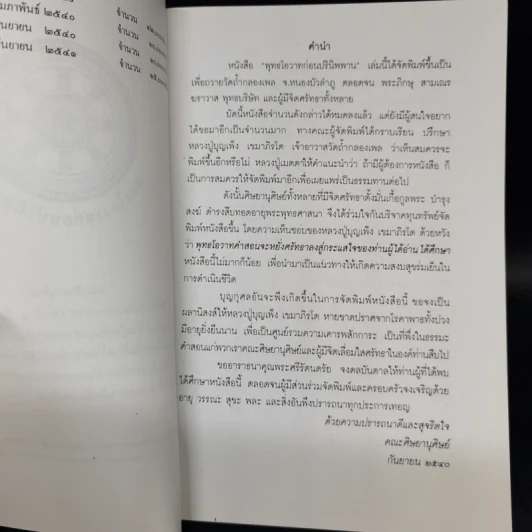 มภาพันธ์ ๒๕๔๐ จำนวน
ันยายน ๒๕๔๐ จำนวน
ันยายน ๒๕๔๑ จำนวน
คำนำ
หนังสือ "พุทธโอวาทก่อนปรินิพพาน" เล่มนี้ได้จัดพิมพ์ขึ้นเป็น
เพื่อถวายวัดถ้ำกลองเพล จ.หนองบัวลำภู ตลอดจน พระภิกษุ สามเณร
ฆราวาส พุทธบริษัท และผู้มีจิตศรัทธาทั้งหลาย
บัดนี้หนังสือจำนวนดังกล่าวได้หมดลงแล้ว แต่ยังมีผู้สนใจอยาก
ได้ขอมาอีกเป็นจำนวนมาก ทางคณะผู้จัดพิมพ์ได้กราบเรียน ปรึกษา
หลวงปู่บุญเพ็ง เขมาภิรโต เจ้าอาวาสวัดถ้ำกลองเพล ว่าเห็นสมควรจะ
พิมพ์ขึ้นอีกหรือไม่ หลวงปู่เมตตาให้คำแนะนำว่า ถ้ามีผู้ต้องการหนังสือ ก็
เป็นการสมควรให้จัดพิมพ์มาอีกเพื่อเผยแพร่เป็นธรรมทานต่อไป
ดังนั้นศิษยานุศิษย์ทั้งหลายที่มีจิตศรัทธาตั้งมั่นเกื้อกูลพระ บำรุง
สงฆ์ ดำรงสืบทอดอายุพระพุทธศาสนา จึงได้ร่วมใจกันบริจาคทุนทรัพย์จัด
พิมพ์หนังสือขึ้น โดยความเห็นชอบของหลวงปู่บุญเพ็ง เขมาภิรโต ด้วยหวัง
ว่า พุทธโอวาทคำสอนจะหยั่งศรัทธาลงสู่กระแสใจของท่านผู้ได้อ่าน ได้ศึกษา
หนังสือนี้ไม่มากก็น้อย เพื่อนำมาเป็นแนวทางให้เกิดความสงบสุขร่มเย็นใน
การดำเนินชีวิต
บุญกุศลอันจะพึงเกิดขึ้นในการจัดพิมพ์หนังสือนี้ ขอจงเป็น
ผลานิสงส์ให้หลวงปู่บุญเพ็ง เขมาภิรโต หายขาดปราศจากโรคาพาธทั้งปวง
มีอายุยิ่งยืนนาน เพื่อเป็นศูนย์รวมความเคารพสักการะ เป็นที่พึ่งในธรรมะ
คำสอนแก่พวกเราคณะศิษยานุศิษย์และผู้มีจิตเลื่อมใสศรัทธาในองค์ท่านสืบไป
ขออาราธนาคุณพระศรีรัตนตรัย จงดลบันดาลให้ท่านผู้ที่ได้พบ
ได้ศึกษาหนังสือนี้ ตลอดจนผู้มีส่วนร่วมจัดพิมพ์และครอบครัวจงเจริญด้วย
อายุ วรรณะ สุขะ พละ และสิ่งอันพึงปรารถนาทุกประการเทอญ
ด้วยความปรารถนาดีและสุจริตใจ
คณะศิษยานุศิษย์
กันยายน ๒๕๔๐